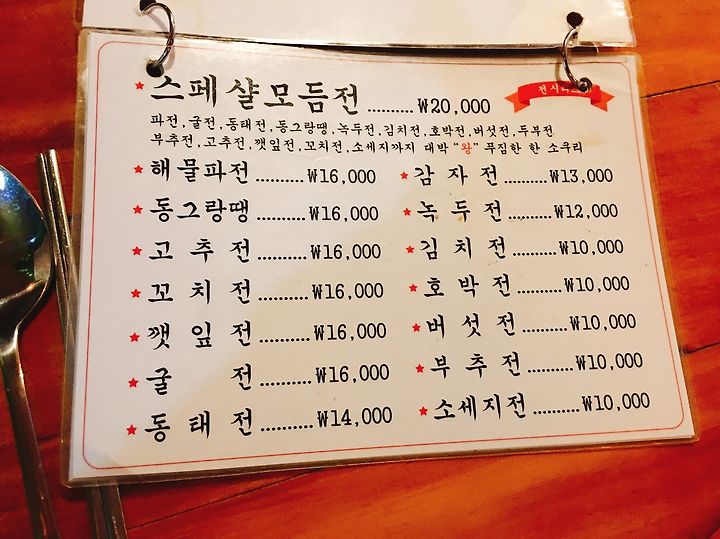 전시
★스페샬모듬전..........₩20,000
파전,굴전,동태전,동그랑땡,녹두전,김치전,호박전,버섯전,두부전
부추전,고추전,깻잎전,꼬치전,소세지까지 대박 "왕" 푸짐한 한 소쿠리
★해물파전..........₩16,000
★동그랑땡..........₩16,000
★고추전..........₩16,000
★꼬치전..........₩16,000
★깻잎전..........₩16,000
★굴전..........₩16,000
★동태전..........₩14,000
★감자전..........₩13,000
★녹두전..........₩12,000
★김치전..........₩10,000
★호박전..........₩10,000
★버섯전..........₩10,000
★부추전..........₩10,000
★소세지전..........₩10,000